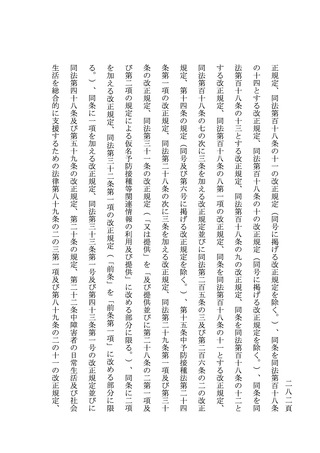 二八二頁
正規定、同法第百十八条の十一の改正規定（同号に掲げる改正規定を除く。）、同条を同法第百十八条
の十四とする改正規定、同法第百十八条の十の改正規定（同号に掲げる改正規定を除く。）、同条を同
法第百十八条の十三とする改正規定、同法第百十八条の九の改正規定、同条を同法第百十八条の十二と
する改正規定、同法第百十八条の八第一項の改正規定、同条を同法第百十八条の十一とする改正規定、
同法第百十八条の七の次に三条を加える改正規定並びに同法第二百五条の三及び第二百六条の二の改正
規定、第十四条の規定（同号及び第六号に掲げる改正規定を除く。）、第十五条中予防接種法第二十四
条第一項の改正規定、同法第二十八条の次に三条を加える改正規定、同法第二十九条第一項及び第三十
条の改正規定、同法第三十一条の改正規定（「又は提供」を「及び提供並びに第二十八条の二第一項及
び第二項の規定による仮名予防接種等関連情報の利用及び提供」に改める部分に限る。）、同条に二項
を加える改正規定、同法第三十二条第一項の改正規定（「前条」を「前条第一項」に改める部分に限
る。）、同条に一項を加える改正規定、同法第三十三条第一号及び第四十三条第一号の改正規定並びに
同法第四十八条及び第五十九条の改正規定、第二十条の規定、第二十二条中障害者の日常生活及び社会
生活を総合的に支援するための法律第八十九条の二の三第一項及び第八十九条の二の十一の改正規定、